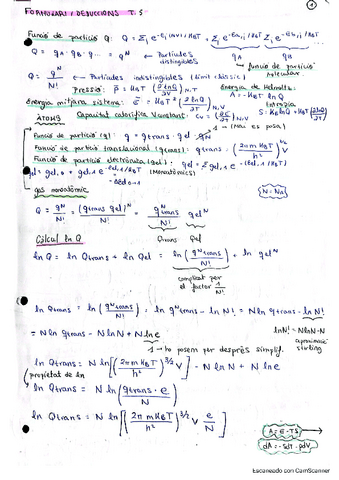 FORMULARI / DEDUCCIONS T. 5
①
Funció de partició Q: Q = Σi e^-Ei(N,V)/KBT = Σi e^-Eai/KBT Σi e^-Ebi/KBT ...
Q = qA · qB · qC ... = q^N ← Partícules distingibles
qA qB
Funció de partició Molecular
Q = q^N / N! ← Partícules indistingibles (límit clàssic)
Pressió: p̄ = KBT (∂lnQ/∂V)N,T
Energia de Helmholtz: A = -KBT lnQ
Energia mitjana sistema: Ē = KBT² (∂lnQ/∂T)N,V
Entropia
S = KBlnQ + KBT (∂lnQ/∂T)
ÀTOMS
Capacitat calorífica V constant: Cv = (∂Ē/∂T)N,V
Funció de partició (q): q = qtrans · qel · qNN
1 → (No es posa)
Funció de partició translacional (qtrans): qtrans = (2πmKBT/h²)^3/2 V
Funció de partició electrònica (qel): qel = Σ gel,i e^-(Eel,i/KBT)
qel = gel,0 + gel,1 e^-Eel,1/KBT (Monoatòmics)
N = NA
gas monoatòmic
Q = q^N/N! = (qtrans qel)^N/N! = q^N trans/N! qel^N
Qtrans Qel
Càlcul ln Q
ln Q = ln Qtrans + ln Qel = ln (q^N trans/N!) + ln qel^N
complicat per el factor 1/N!
ln Qtrans = ln (q^N trans/N!) = ln q^N trans - ln N! = N ln qtrans - ln N!
= N ln qtrans - N ln N + N ln e
lnN! = NlnN-N
aproximació stirling
1 → ho posem per després simplif.
ln Qtrans = N ln [(2πmKBT/h²)^3/2 V] - N ln N + N ln e
propietat de ln
ln Qtrans = N ln (qtrans · e/N)
ln Qtrans = N ln [(2πmKBT/h²)^3/2 V e/N]
A = E - TS
dA = -SdT - pdV
Escaneado con CamScanner